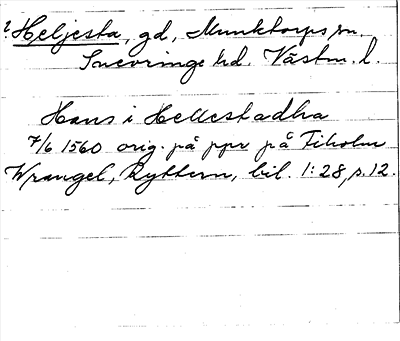 ? Heljesta, gd, Munktorps sn.
Snevringe hd. Västm. l.
Hans i Hellestadha
7/6 1560 orig. på ppr på Tiholm
Wrangel, Ryttern, bil. 1:28, s. 12.